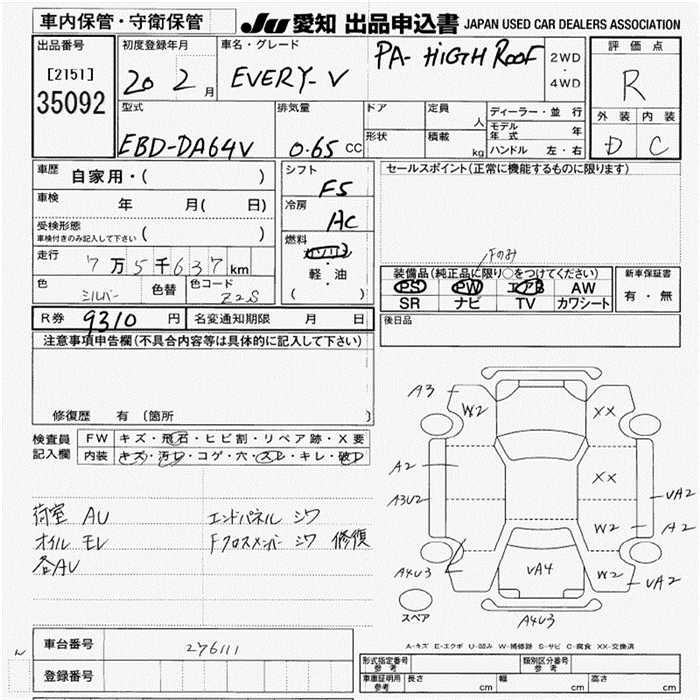 車内保管・守衛保管
JU 愛知 出品申込書 JAPAN USED CAR DEALERS ASSOCIATION
出品番号
[2151]
35092
初度登録年月
20 2 月
車名・グレード
EVERY-V
PA-HiGH Roof
2WD
・
4WD
評価点
R
外装 内装
D C
型式
EBD-DA64V
排気量
0.65 CC
ドア
形状
定員
人
積載
kg
ディーラー・並行
モデル年式 年
ハンドル 左・右
車歴
自家用・( )
車検
年 月( 日)
受検形態
車検付きのみ記入して下さい ( )
走行
7万5千637km
色
シルバー
色替
色コード
Z2S
シフト
F5
冷房
AC
燃料
ガソリン
・
軽・油
( )
セールスポイント(正常に機能するものに限ります)
Fのみ
装備品(純正品に限り○をつけてください)
PS PW エアB AW
SR ナビ TV カワシート
新車保証書
有・無
R券 9310 円 名変通知期限 月 日
後日品
注意事項申告欄(不具合内容等は具体的に記入して下さい)
修復歴 有 〔箇所 〕
検査員
記入欄
FW キズ・飛石・ヒビ割・リペア跡・X要
内装 キズ・汚レ・コゲ・穴・スレ・キレ・破レ
荷室 AU エンドパネル シワ
オイル モレ Fクロスメンバー シワ 修復
各AU
A3
W2
XX
A2
XX
A3U2
VA2
W2
A2
A4U3
VA4
W2
VA2
スペア
A4U3
A-キズ E-エクボ U-凹み W-補修跡 S-サビ C-腐食 XX-交換済
車台番号 276111
登録番号
形式指定番号
参考
類別区分番号
参考
車庫証明用
参考
長さ cm 幅 cm 高さ cm